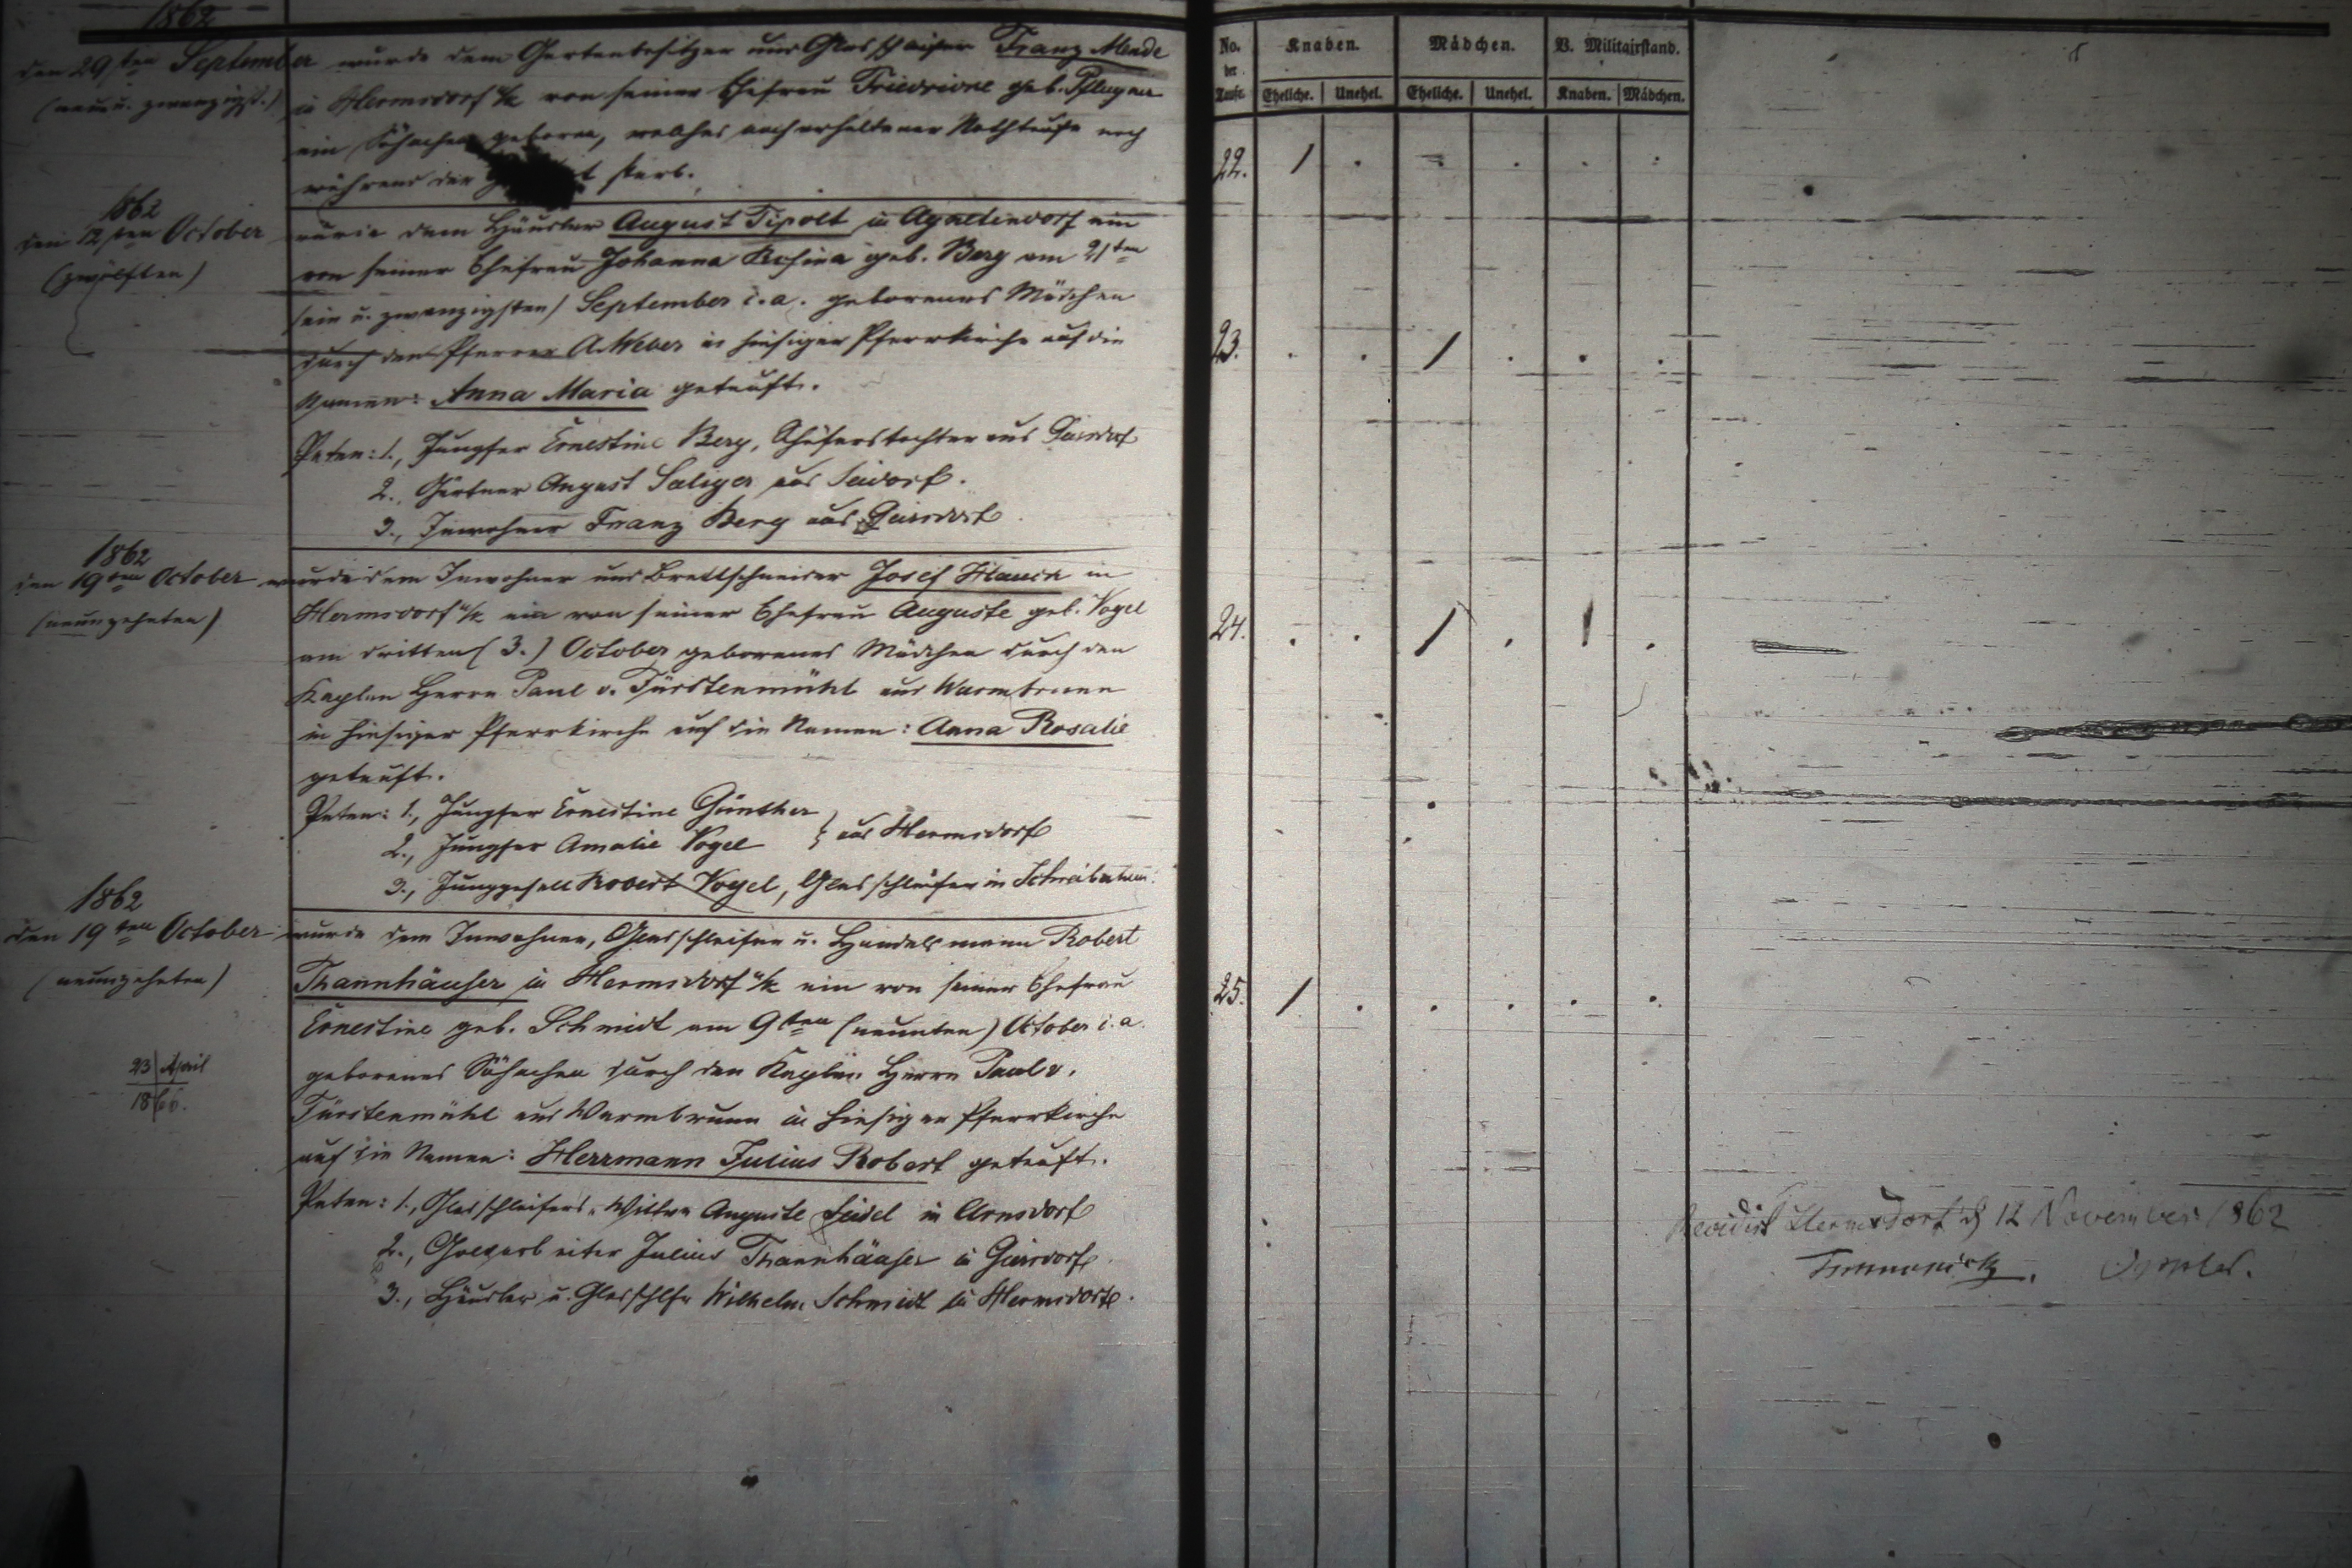 1862
den 29sten September wurde dem Gartenbesitzer und Glasschleifer Franz Mende
(neun u. zwanzigst.) in Hermsdorf u/K von seiner Ehefrau Friedricke geb. Pflugner
ein Söhnchen geboren, welches nach erhaltener Nothtaufe noch
während der starb.
1862
den 12ten October wurde dem Häusler August Tipolt in Agnetendorf ein
(zwölften) von seiner Ehefrau Johanna Rosina geb. Berg am 21ten
(ein u. zwanzigsten) September c. a. geborenes Mädchen
durch den Pfarrer A. Weber in hiesiger Pfarrkirche auf die
Namen: Anna Maria getauft.
Paten: 1., Jungfer Ernestine Berg, Schäferstochter aus Giersdorf
2., Gärtner August Saliger aus Seidorf.
3., Inwohner Franz Berg aus Giersdorf
1862
den 19ten October wurde dem Inwohner und Brettschneider Josef Hauck in
(neunzehnten) Hermsdorf u/K ein von seiner Ehefrau Auguste geb. Vogel
am dritten (3.) October geborenes Mädchen durch den
Kaplan Herrn Paul v. Fürstenmühl aus Warmbrunn
in hiesiger Pfarrkirche auf die Namen: Anna Rosalie
getauft.
Paten: 1., Jungfer Ernestine Günther
2., Jungfer Amalie Vogel } aus Hermsdorf
3., Junggesell Robert Vogel, Glasschleifer in Schreiberhau.
1862
den 19ten October wurde dem Inwohner, Glasschleifer u. Handelsmann Robert
(neunzehnten) Thannhäuser in Hermsdorf u/K ein von seiner Ehefrau
Ernestine geb. Schmidt am 9ten (neunten) October c. a.
23 April geborenes Söhnchen durch den Kaplan Herrn Paul v.
1866. Fürstenmühl aus Warmbrunn in hiesiger Pfarrkirche
auf die Namen: Herrmann Julius Robert getauft.
Paten: 1., Glasschleifers-Wittwe Auguste Seidel in Arnsdorf
2., Julius Thannhäuser in Giersdorf
3., Häusler u. Glasschlfr Wilhelm Schmidt in Hermsdorf.
No. der Taufe. Knaben. Mädchen. B. Militairstand.
Eheliche. Unehel. Eheliche. Unehel. Knaben. Mädchen.
22. 1 . . . .
23. . . 1 . . .
24. . . 1 . 1 .
25. 1 . . . . .
Revidirt Hermsdorf d 12 November 1862